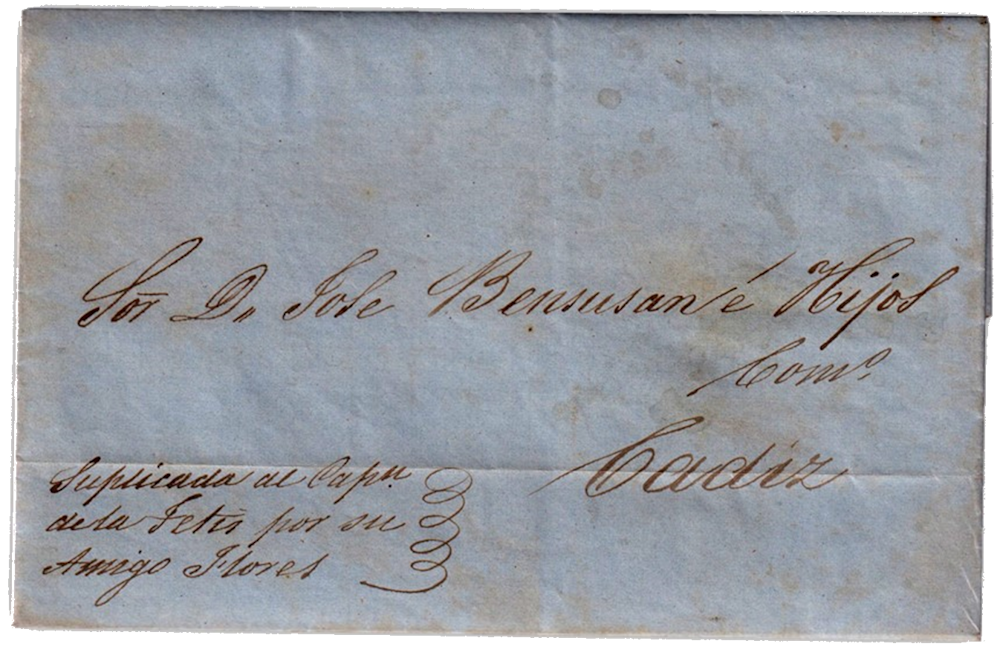 Sor Dn Jose Bensusan é Hijos
Como
Cadiz
Suplicada al Capn
de la Fetis por su
Amigo Flores